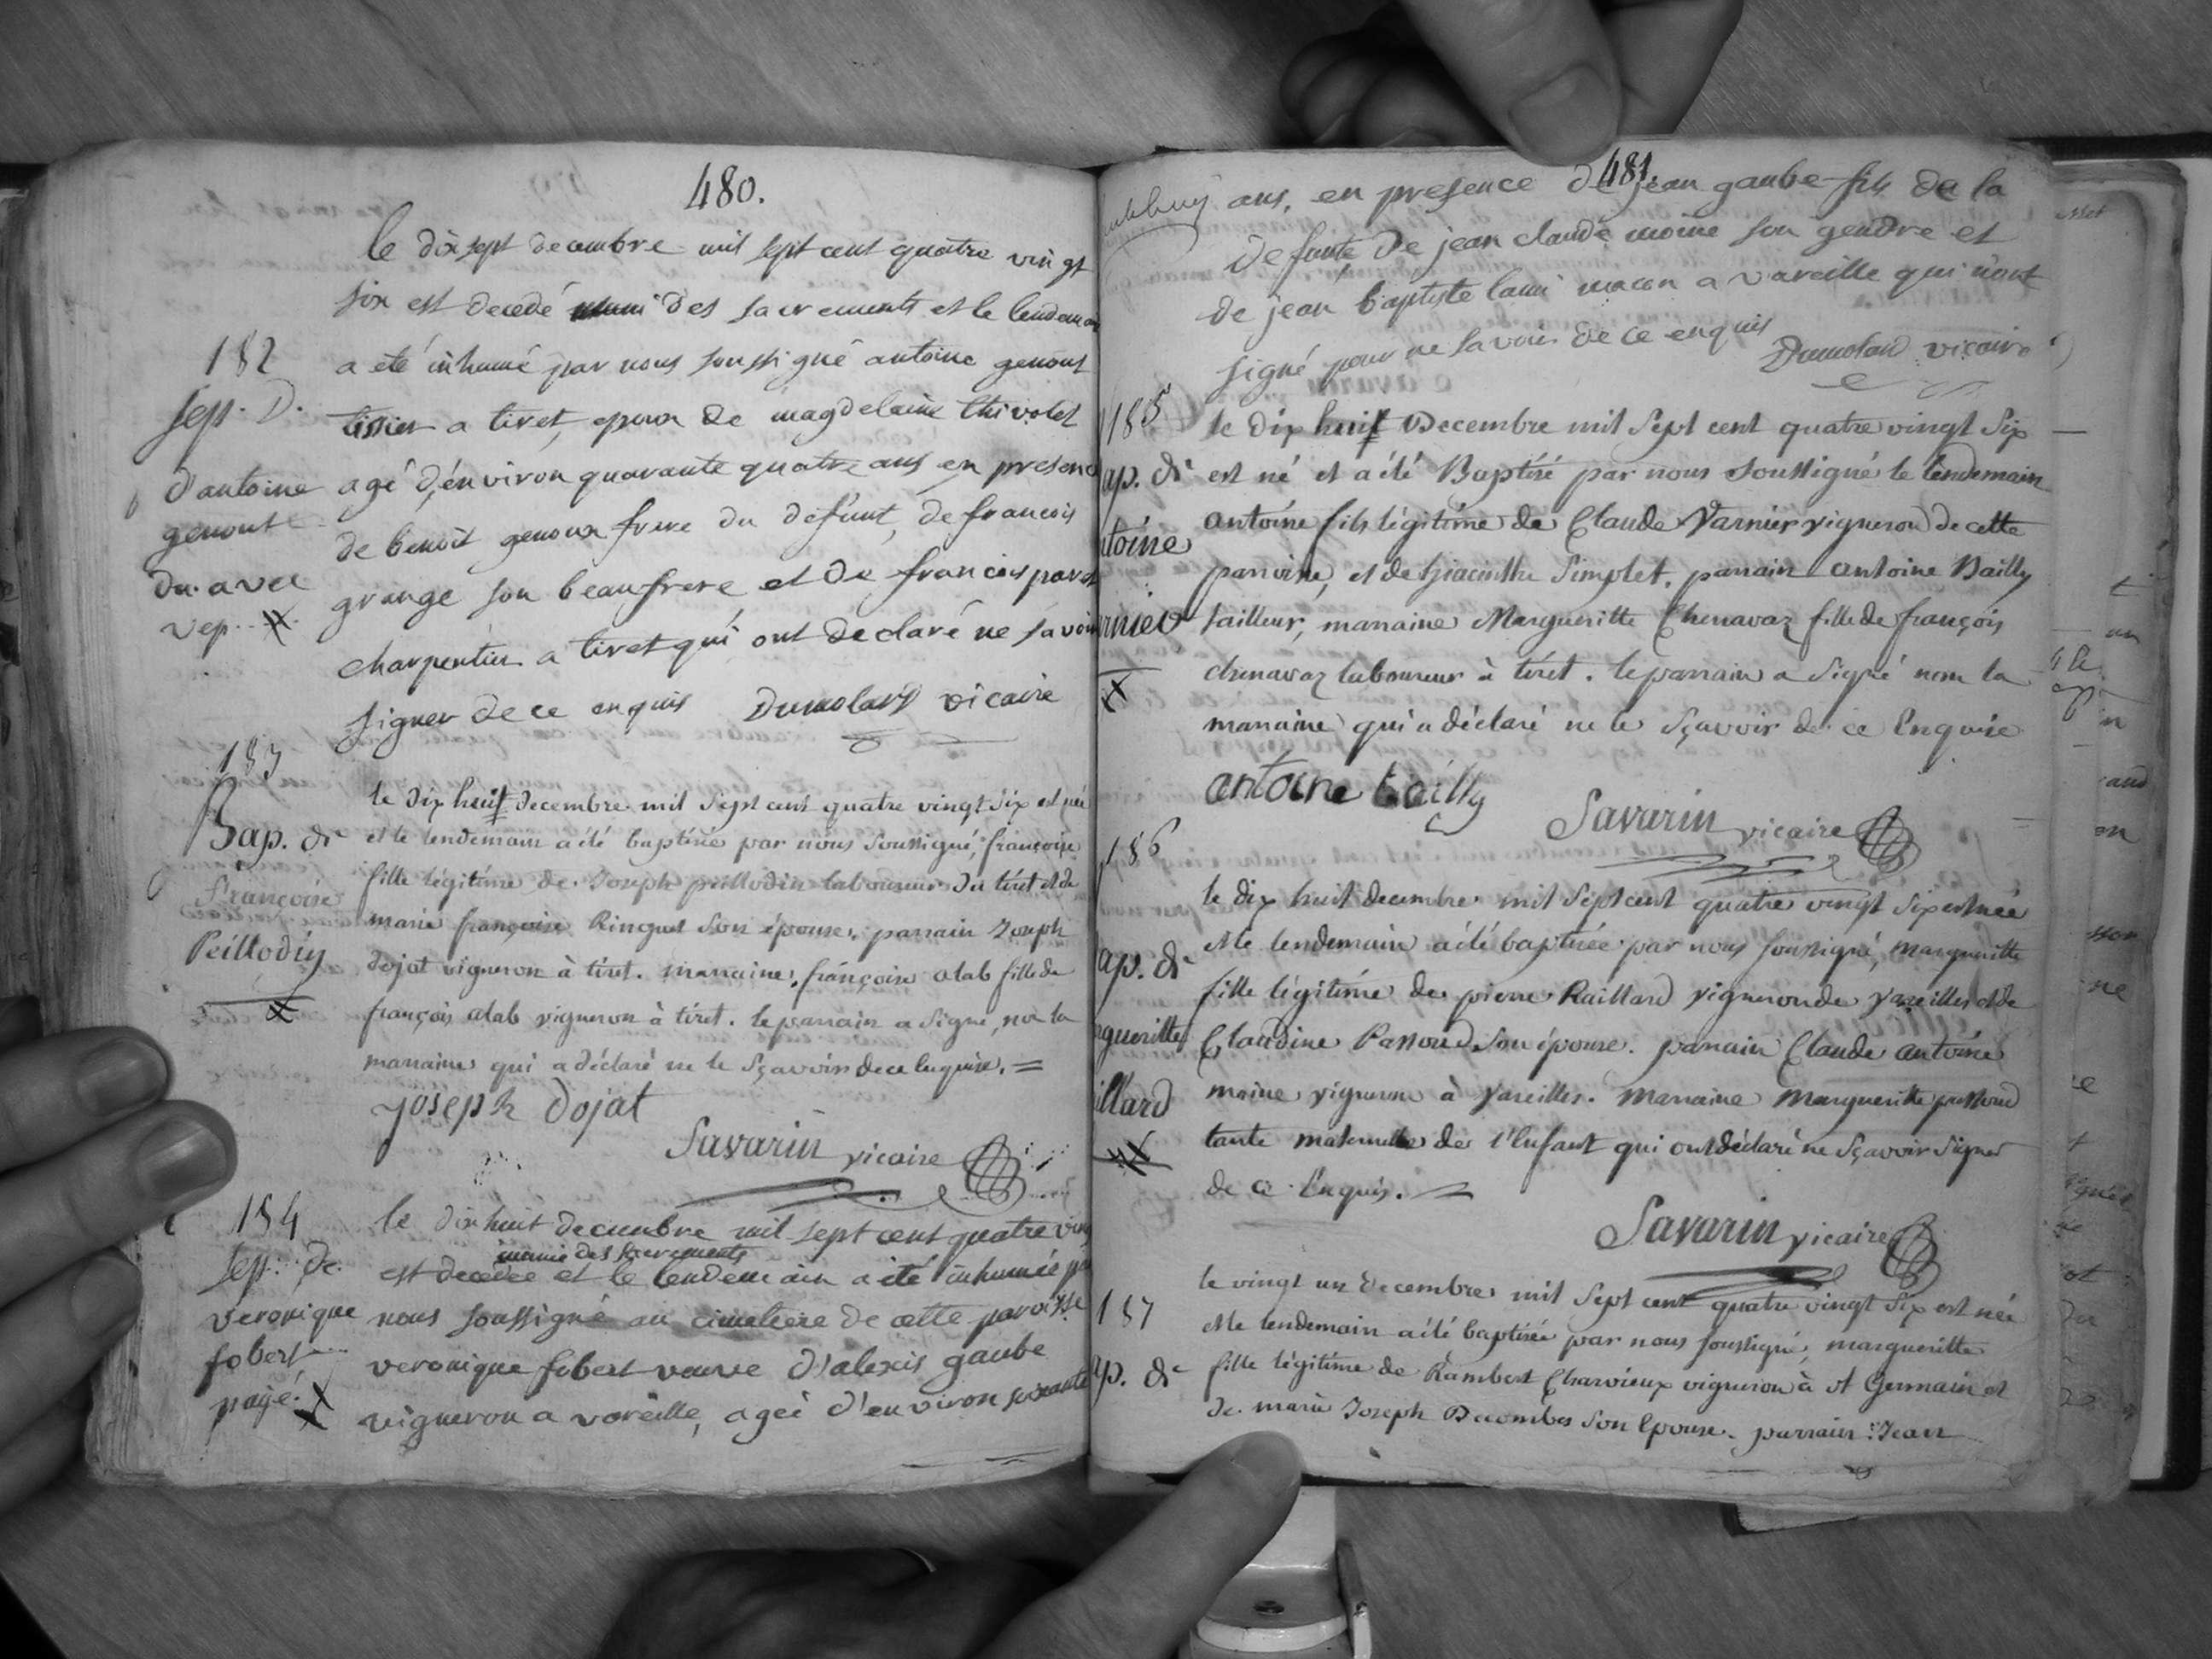 480.
le dixsept decembre mil sept cent quatre vingt
six est decedé muni des sacrements et le lendemain
182
a eté inhumé par nous soussigné antoine genout
sep. D.
tissier a tiret, epoux de magdelaine thivolet
d'antoine
agé d'environ quarante quatre ans en presence
genout
de benoit genoux frere du defunt, de francois
du. avec
grange son beaufrere et de francois
vep.
charpentier a tiret qui ont declaré ne savoir
signer de ce enquis Dumolard vicaire
183
le dix huit decembre mil sept cent quatre vingt six est née
Bap. de
et le lendemain a été baptisée par nous soussigné, françoise
françoise
fille légitime de Joseph peillodin laboureur du tiret et de
Peillodin
marie françoise Ringuet son épouse. parrain Joseph
dojat vigneron à tiret. marraine, françoise alab fille de
françois alab vigneron à tiret. le parrain a signé, non la
marraine qui a déclaré ne le sçavoir de ce enquise. =
joseph dojat
Savarin vicaire
184
le dix huit decembre mil sept cent quatre vingt
munie des sacrements
sep. de
est decedee et le lendemain a été inhumée par
veronique
nous soussigné au cimetiere de cette paroisse
fobert
veronique fobert veuve d'alexis gaube
payé.
vigneron a vareille, agée d'environ soixante
481.
ans, en presence de jean gaube fils de la
defunte, de jean claude moine son gendre et
de jean baptiste lami macon a vareille qui n'ont
signé pour ne savoir de ce enquis
Dumolard vicaire
185
le dix huit Decembre mil Sept cent quatre vingt Six
ap. de
est né et a été Baptisé par nous soussigné le lendemain
ntoine
antoine fils légitime de Claude Varnier vigneron de cette
parroisse, et de hiacinthe Simplet. parrain antoine Bailly
rnier
tailleur, marraine Margueritte Chenavaz fille de françois
chenavaz laboureur à tiret. le parrain a signé non la
marraine qui a déclaré ne le sçavoir de ce Enquise
antoine bailly
Savarin vicaire
186
le dix huit decembre mil Sept cent quatre vingt Six est née
et le lendemain a été baptisée par nous soussigné, margueritte
ap. de
fille légitime de pierre Raillard vigneron de vareilles et de
gueritte
Claudine Passoud son épouse. parrain Claude antoine
illard
moine vigneron à vareilles. marraine margueritte passoud
tante maternelle de l'Enfant qui ont déclaré ne sçavoir signer
de ce Enquis.
Savarin vicaire
187
le vingt un decembre mil Sept cent quatre vingt Six est née
et le lendemain a été baptisée par nous soussigné, margueritte
ap. de
fille légitime de Rambert Charvieux vigneron à st Germain et
de marie Joseph Decombes son Epouse. parrain Jean